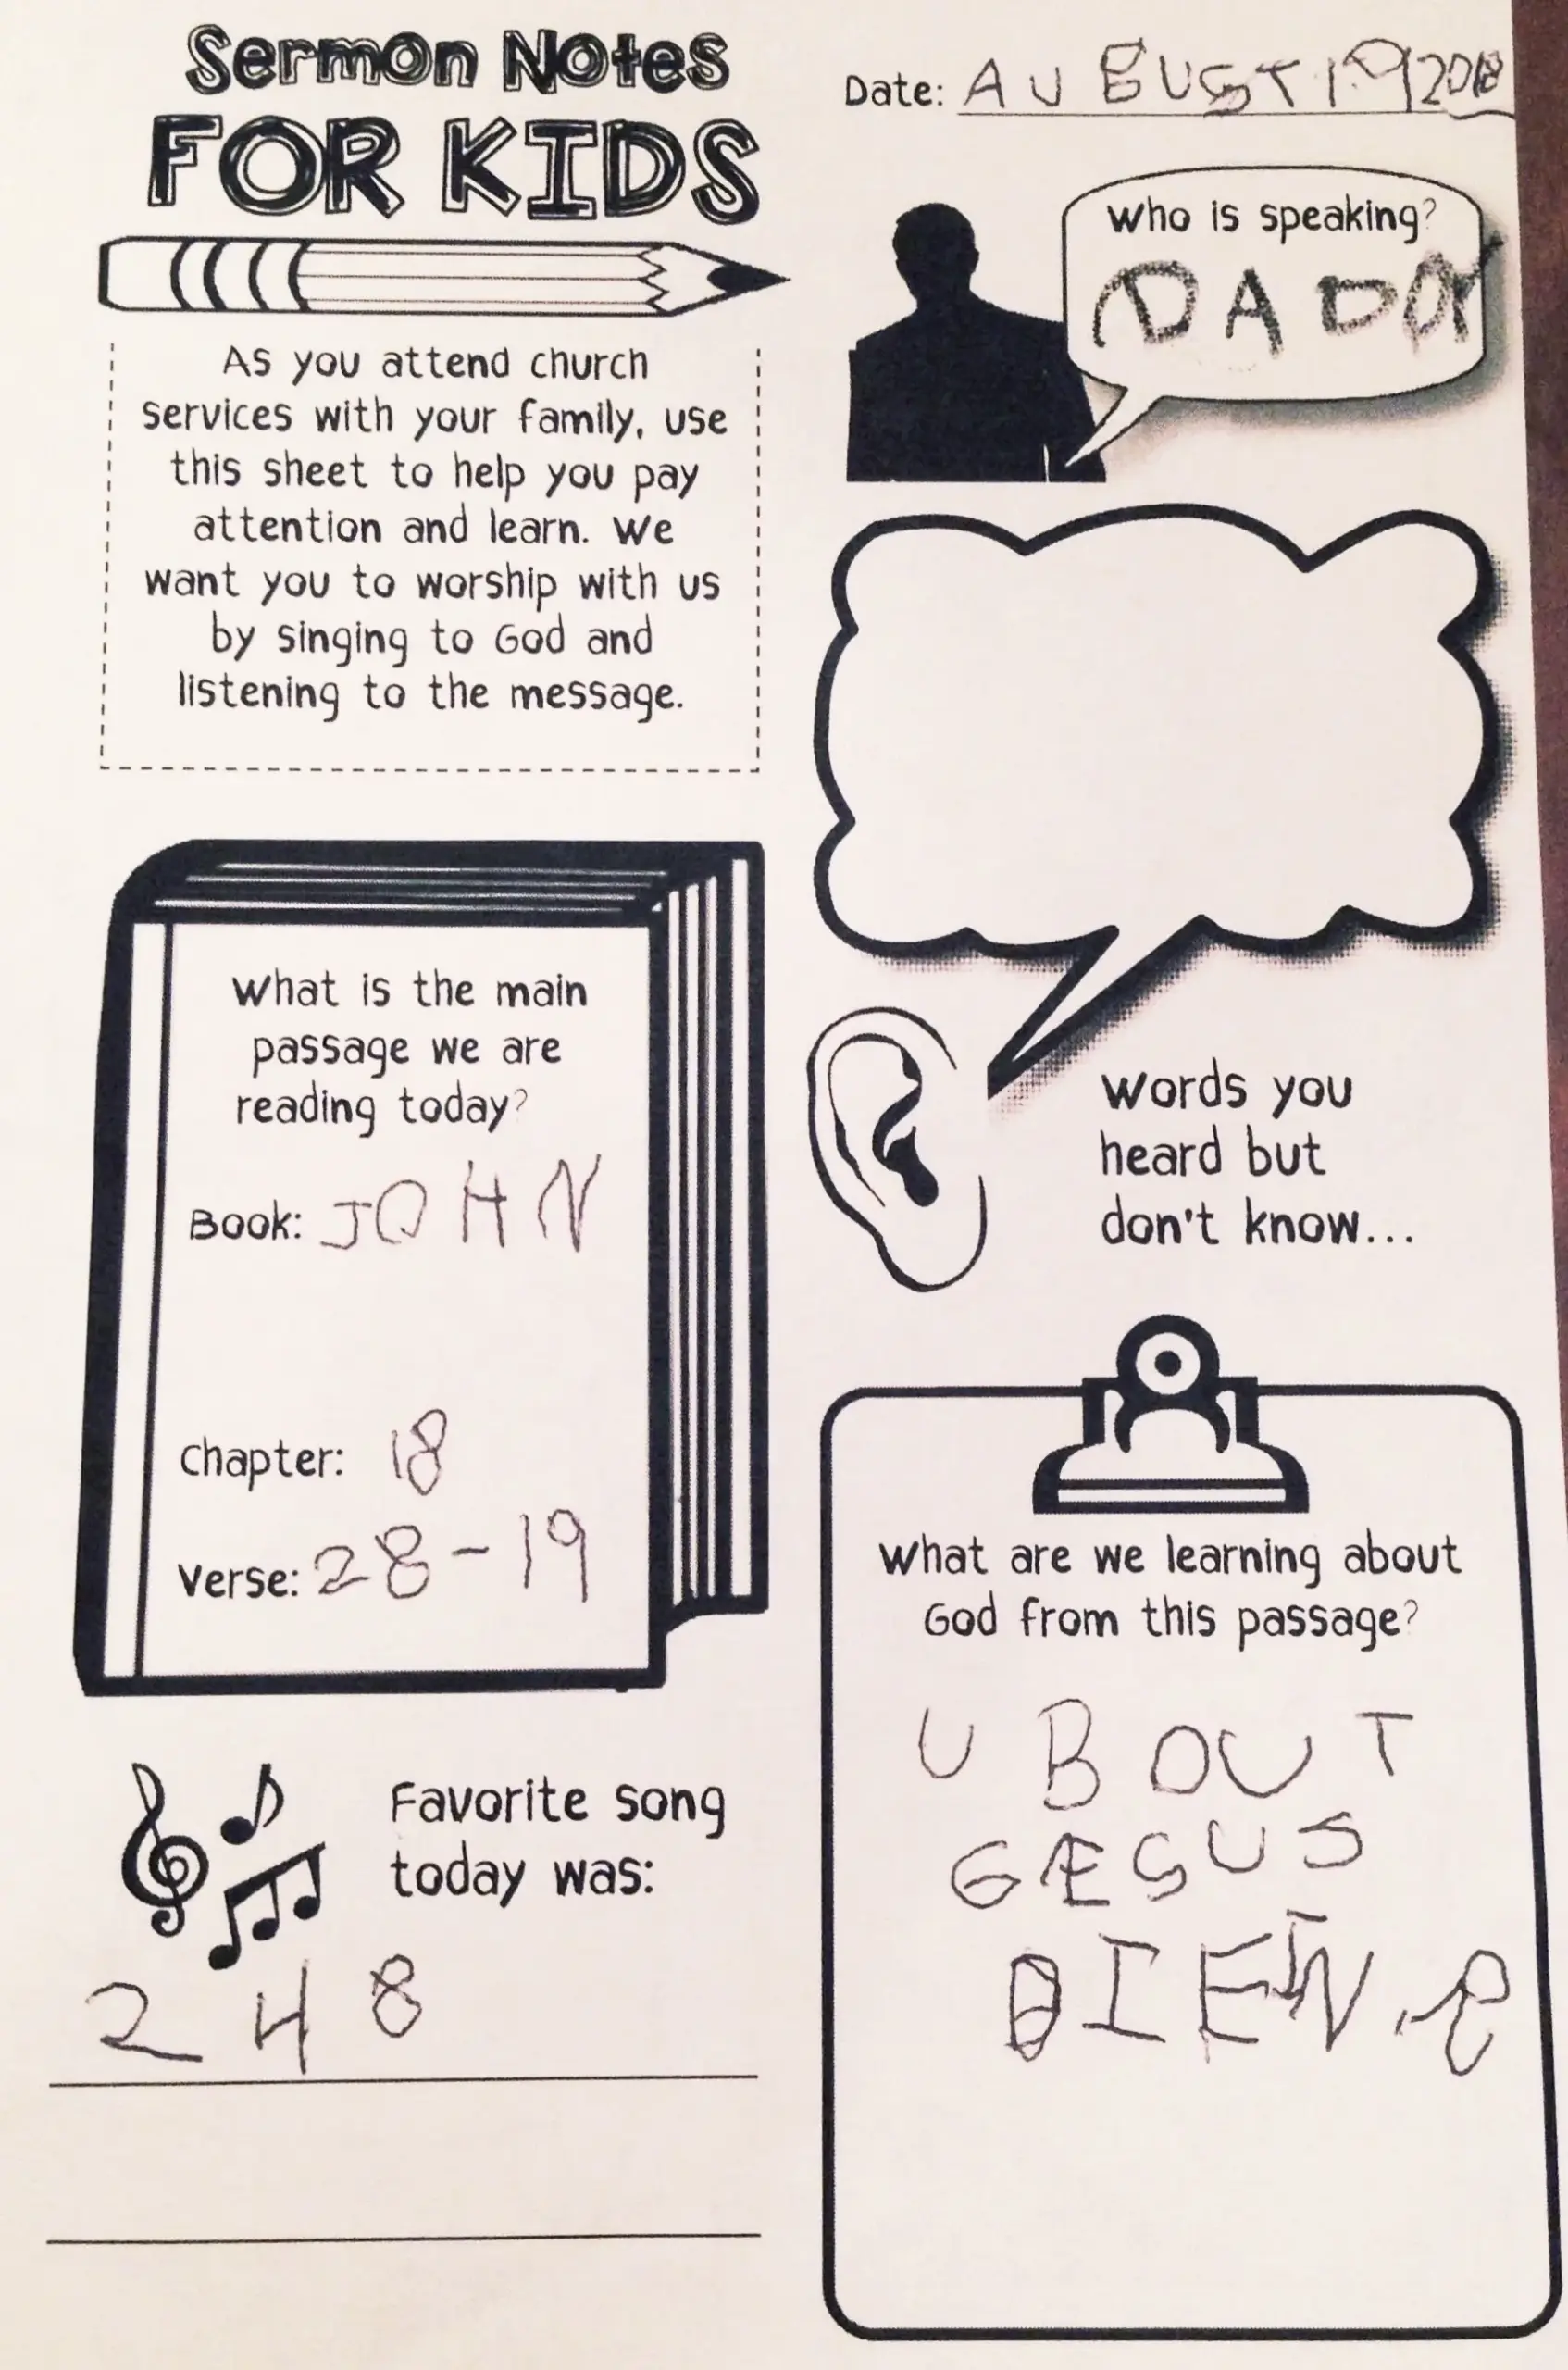 Sermon Notes
FOR KIDS
As you attend church
services with your family, use
this sheet to help you pay
attention and learn. We
want you to worship with us
by singing to God and
listening to the message.
What is the main
passage we are
reading today?
Book: JOHN
Chapter: 18
Verse: 28-19
Favorite song
today was:
248
Date: AUGUST 19 2018
Who is speaking?
DADA
Words you
heard but
don't know...
What are we learning about
God from this passage?
UBOUT
GESUS